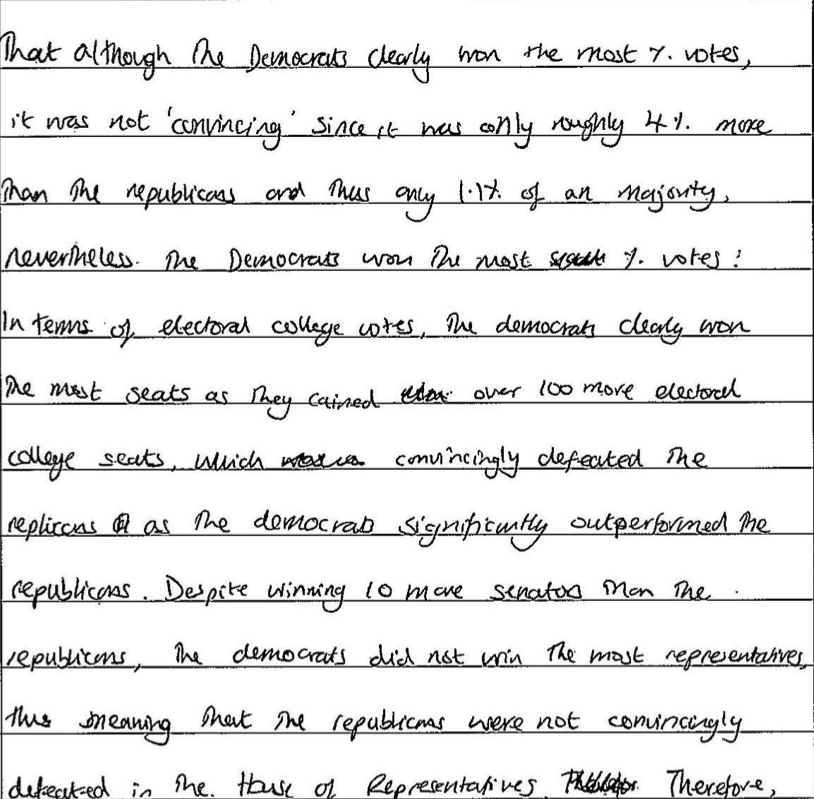 That although the Democrats clearly won the most % votes,
it was not 'convincing' since it was only roughly 4% more
than the republicans and thus only 1.1% of an majority,
nevertheless. the Democrats won the most % votes:
In terms of electoral college votes, the democrats clearly won
the most seats as they cained over 100 more electoral
college seats, which convincingly defeated the
replicans as the democrats significantly outperformed the
republicans. Despite winning 10 more senators than the
republicans, the democrats did not win the most representatives,
thus meaning that the republicans were not convincingly
defeated in the. House of Representatives. Therefore,